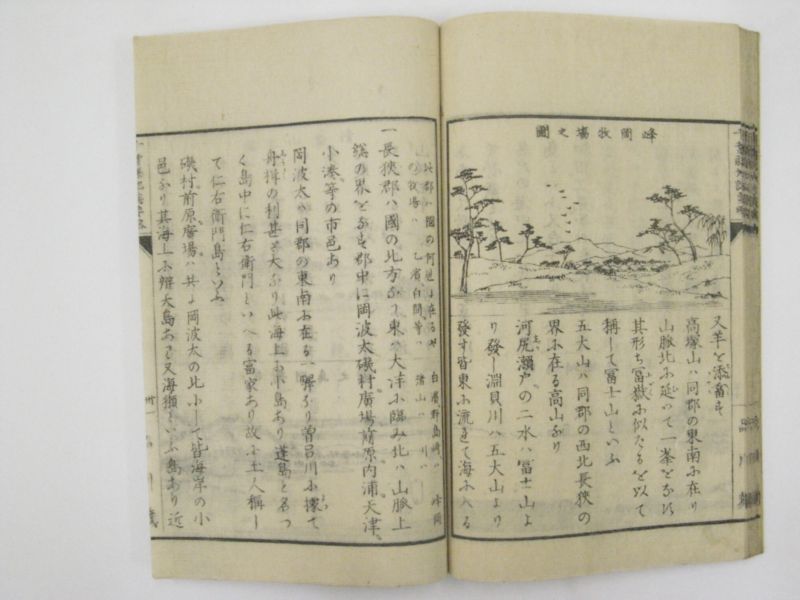 峰岡牧塲之圖
又羊を添畜す
高塚山ハ同郡の東南ふ在り
山脈北ふ延ひて一峯をなす
其形ち冨嶽ふ似たるを以て
稱して冨士山といふ
五大山ハ同郡の西北長狹の
界ふ在る高山なり
河尻瀬戸の二水ハ冨士山よ
り發し淵貝川ハ五大山より
發す皆東ふ流れて海ふ入る
此郡ハ國の何邊ふ在るや
白濱野島崎ハ
峰岡
の牧場ハ
諸山ハ
川ハ
一長狹郡ハ國の北方なり東ハ大洋ふ臨み北ハ山脈上
總の界をなす郡中に岡波太磯村廣場前原内浦天津
小湊等の市邑あり
岡波太ハ同郡の東南ふ在る一驛なり曽呂川ふ據て
舟楫の利甚た大なり此海上ふ小島あり蓬島と名つ
く島中に仁右衛門といへる富家あり故ふ土人稱し
て仁右衛門島といふ
磯村前原廣場ハ共ふ岡波太の北ふして皆海岸の小
邑なり其海上ふ辨天島あり又海獺といふ島あり近